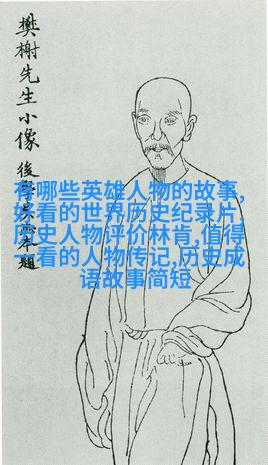 樊榭先生小像
後學 本題
有哪些英雄人物的故事,
好看的世界历史纪录片,
历史人物评价林肯,值得
一看的人物传记,历史成
语故事简短